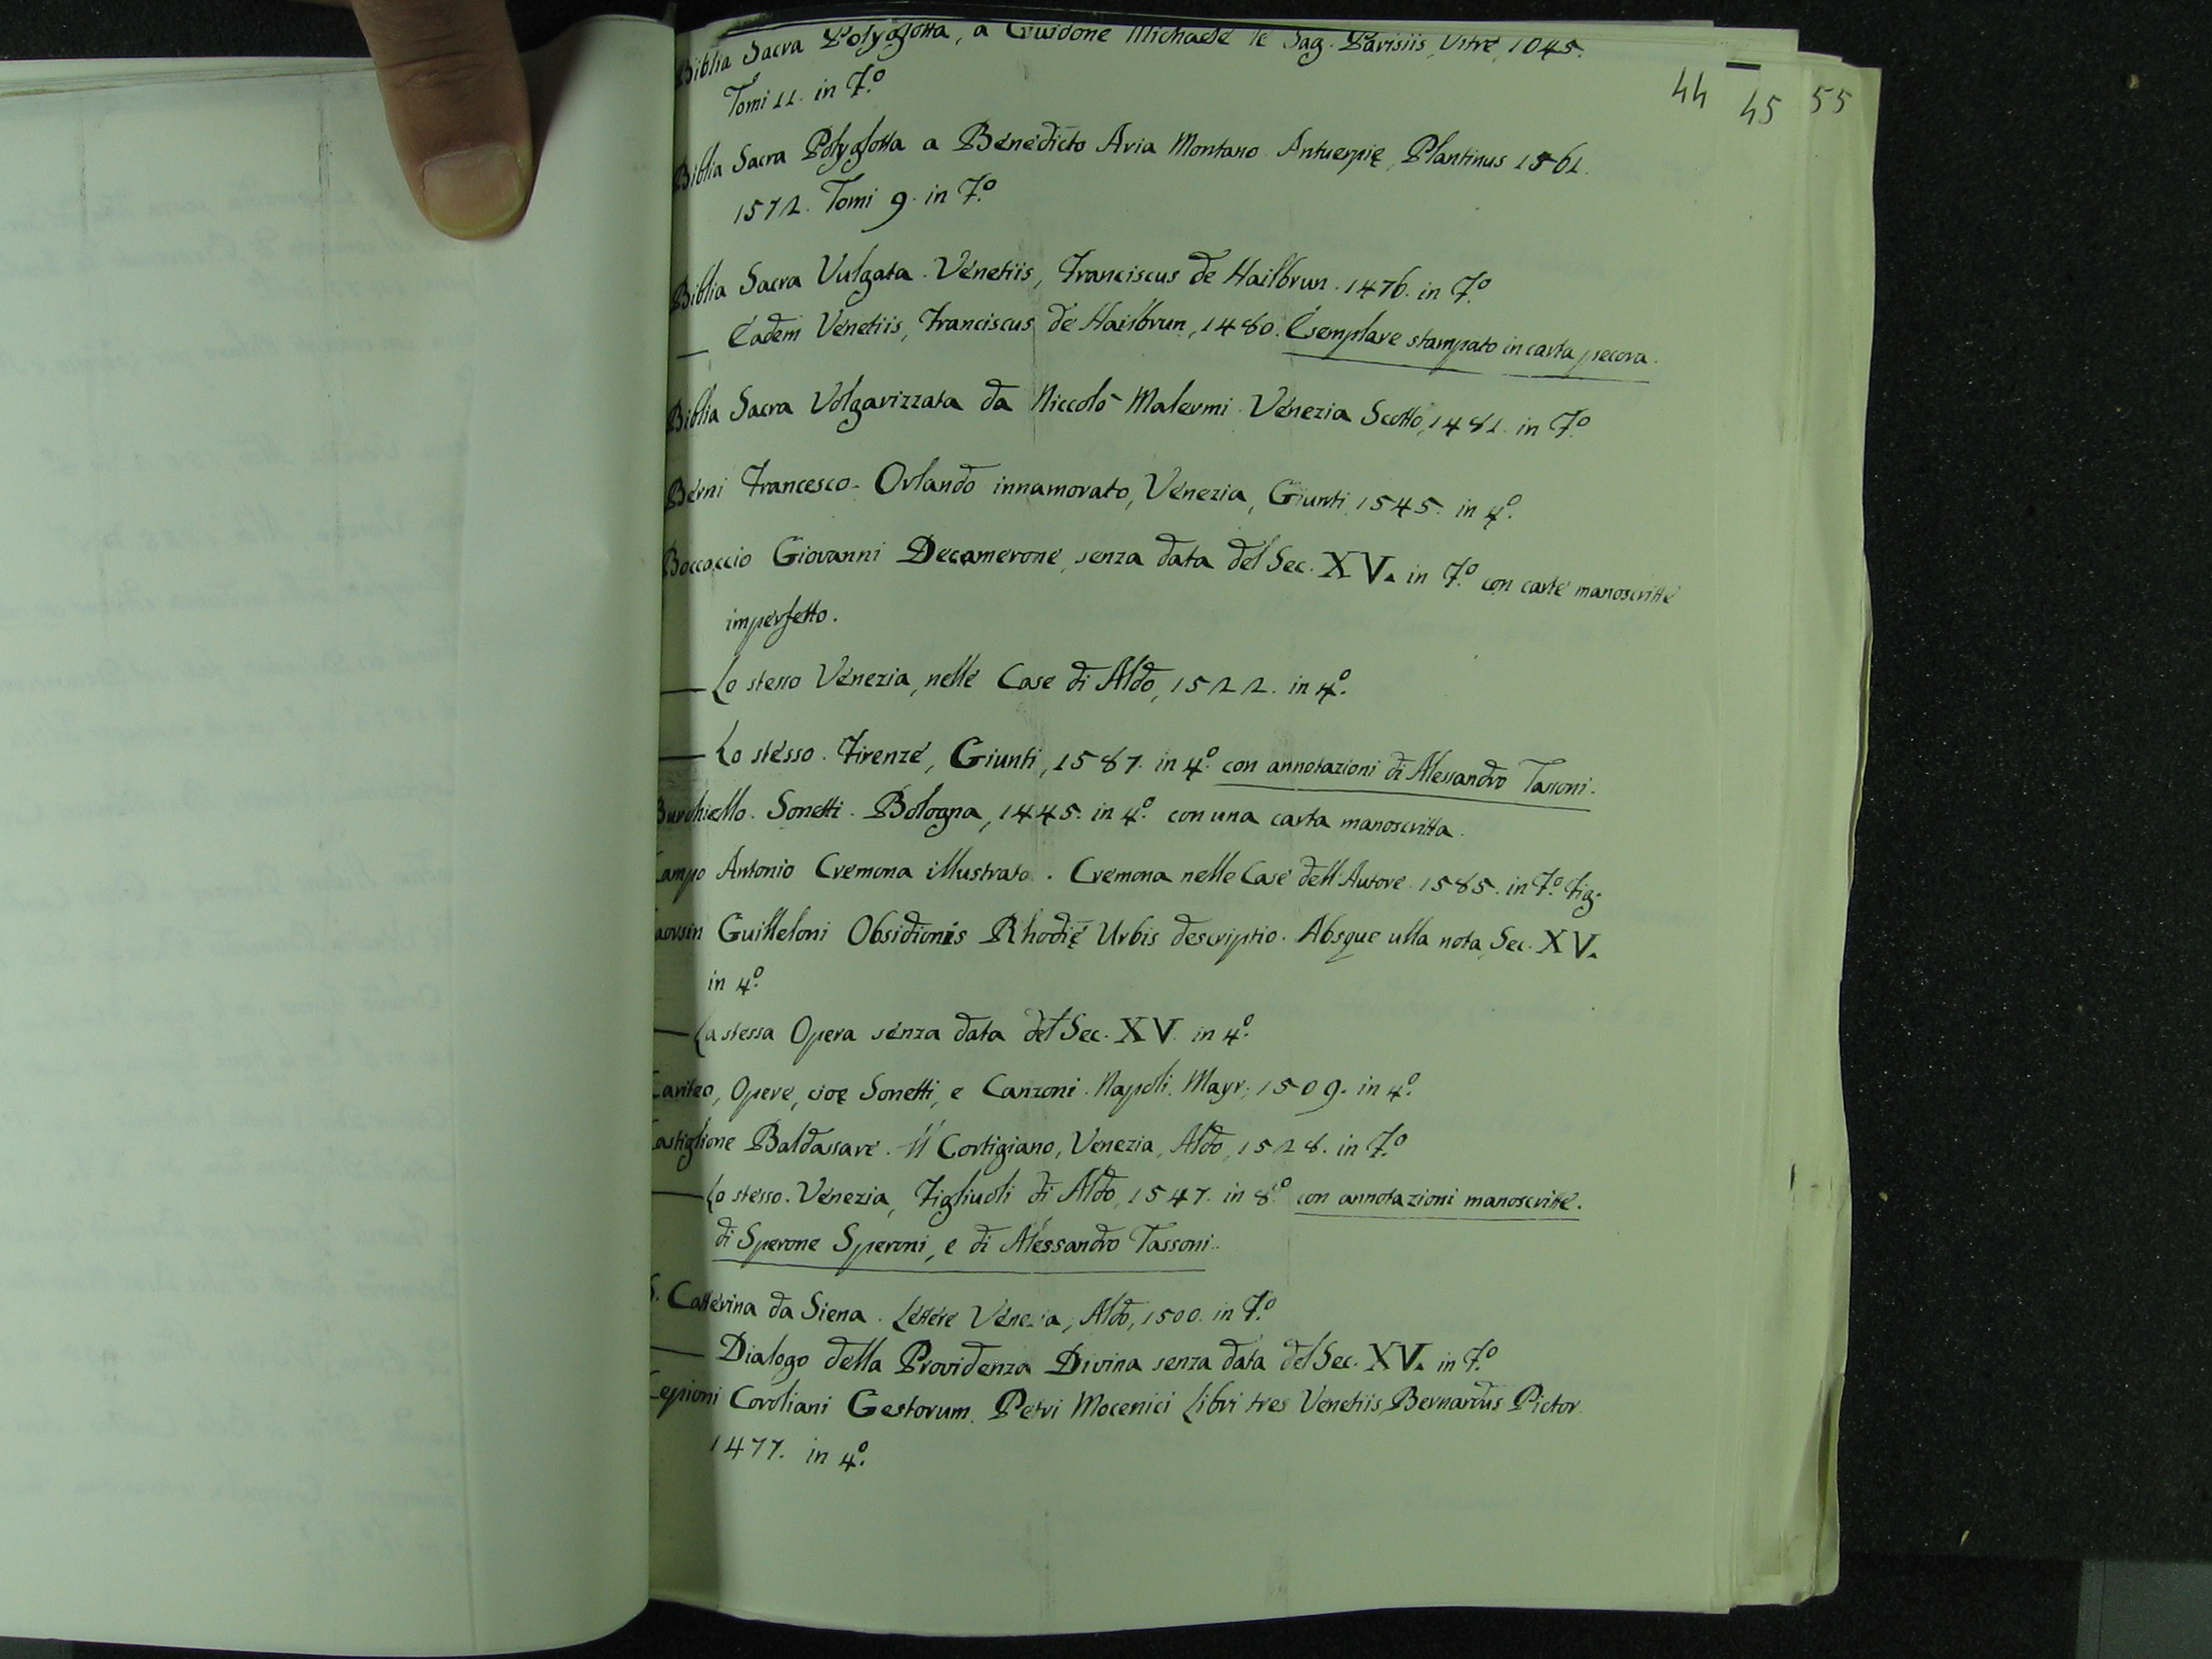 44 45 55
Biblia Sacra Polyglotta, a Guidone Michaele le Jag. Parisiis, Vitré, 1645.
Tomi 11. in F.º
Biblia Sacra Polyglotta a Benedicto Aria Montano. Antuerpię, Plantinus 1561.
1572. Tomi 9. in F.º
Biblia Sacra Vulgata. Venetiis, Franciscus de Hailbrun. 1476. in F.º
— Eadem Venetiis, Franciscus de Hailbrun, 1480. Esemplare stampato in carta pecora.
Biblia Sacra Volgarizzata da Niccolò Malermi. Venezia Scotto, 1481. in F.º
Berni Francesco - Orlando innamorato, Venezia, Giunti, 1545. in 4.º
Boccaccio Giovanni Decamerone, senza data del Sec. XV. in F.º con carte manoscritte
imperfetto.
— Lo stesso Venezia, nelle Case di Aldo, 1522. in 4.º
— Lo stesso. Firenze, Giunti, 1587. in 4.º con annotazioni di Alessandro Tassoni.
Burchiello. Sonetti. Bologna, 1445. in 4.º con una carta manoscritta.
Campo Antonio Cremona illustrata. Cremona nelle Case dell'Autore. 1585. in F.º Fig.
aorsin Guilleloni Obsidionis Rhodię Urbis descriptio. Absque ulla nota, Sec. XV.
in 4.º
— La stessa Opera senza data del Sec. XV. in 4.º
Cariteo, Opere, cioę Sonetti, e Canzoni. Napoli. Mayr, 1509. in 4.º
Castiglione Baldassare. Il Cortigiano, Venezia, Aldo, 1528. in F.º
— Lo stesso. Venezia, Figliuoli di Aldo, 1547. in 8.º con annotazioni manoscritte.
di Sperone Speroni, e di Alessandro Tassoni.
S. Catterina da Siena. Lettere Venezia, Aldo, 1500. in F.º
— Dialogo della Providenza Divina senza data del Sec. XV. in F.º
Cepioni Coroliani Gestorum. Petri Mocenici Libri tres Venetiis, Bernardus Pictor.
1477. in 4.º